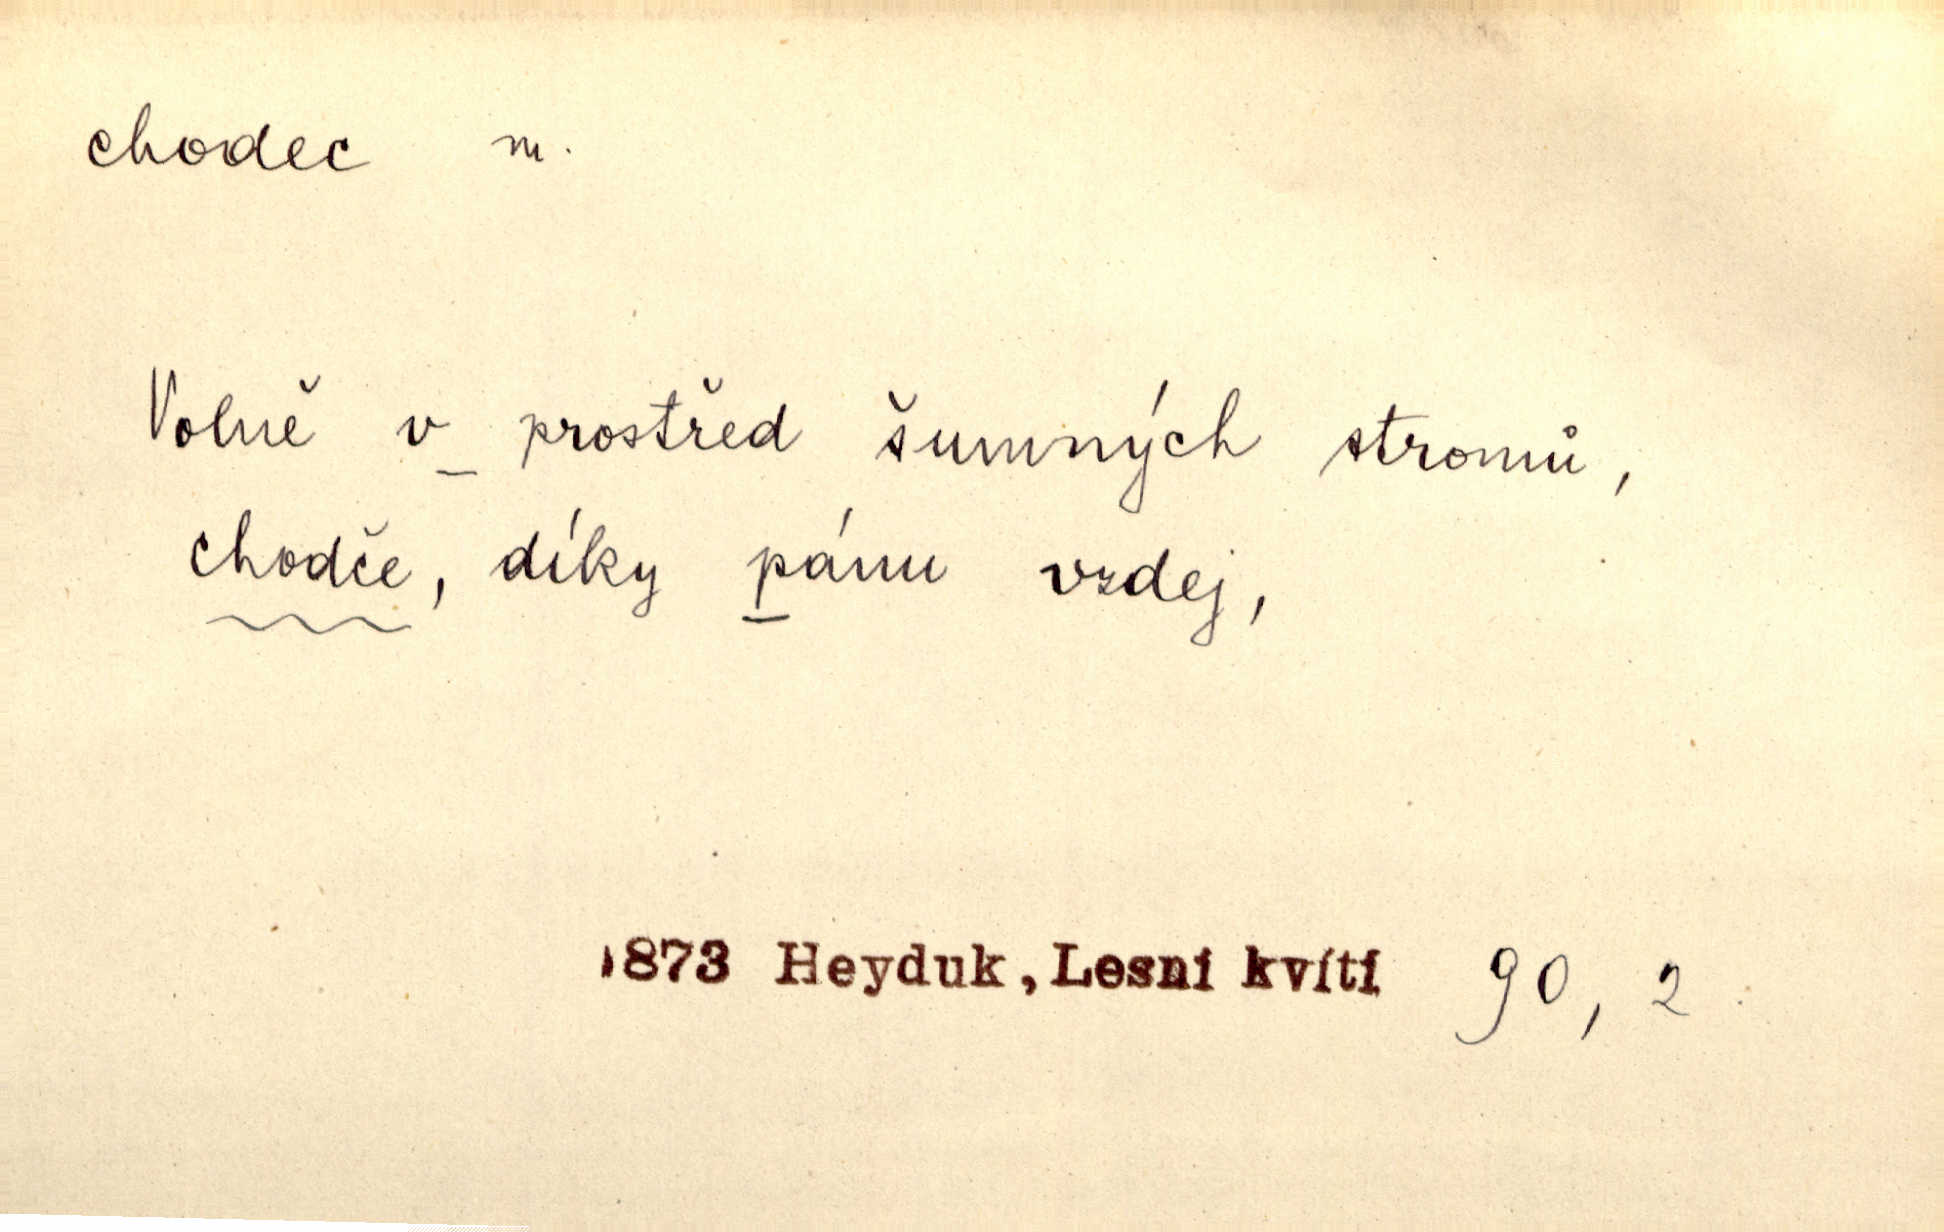 chodec m.
Volně v prostřed šumných stromů,
chodče, díky pánu vzdej,
1873 Heyduk, Lesní kvítí 90, 2